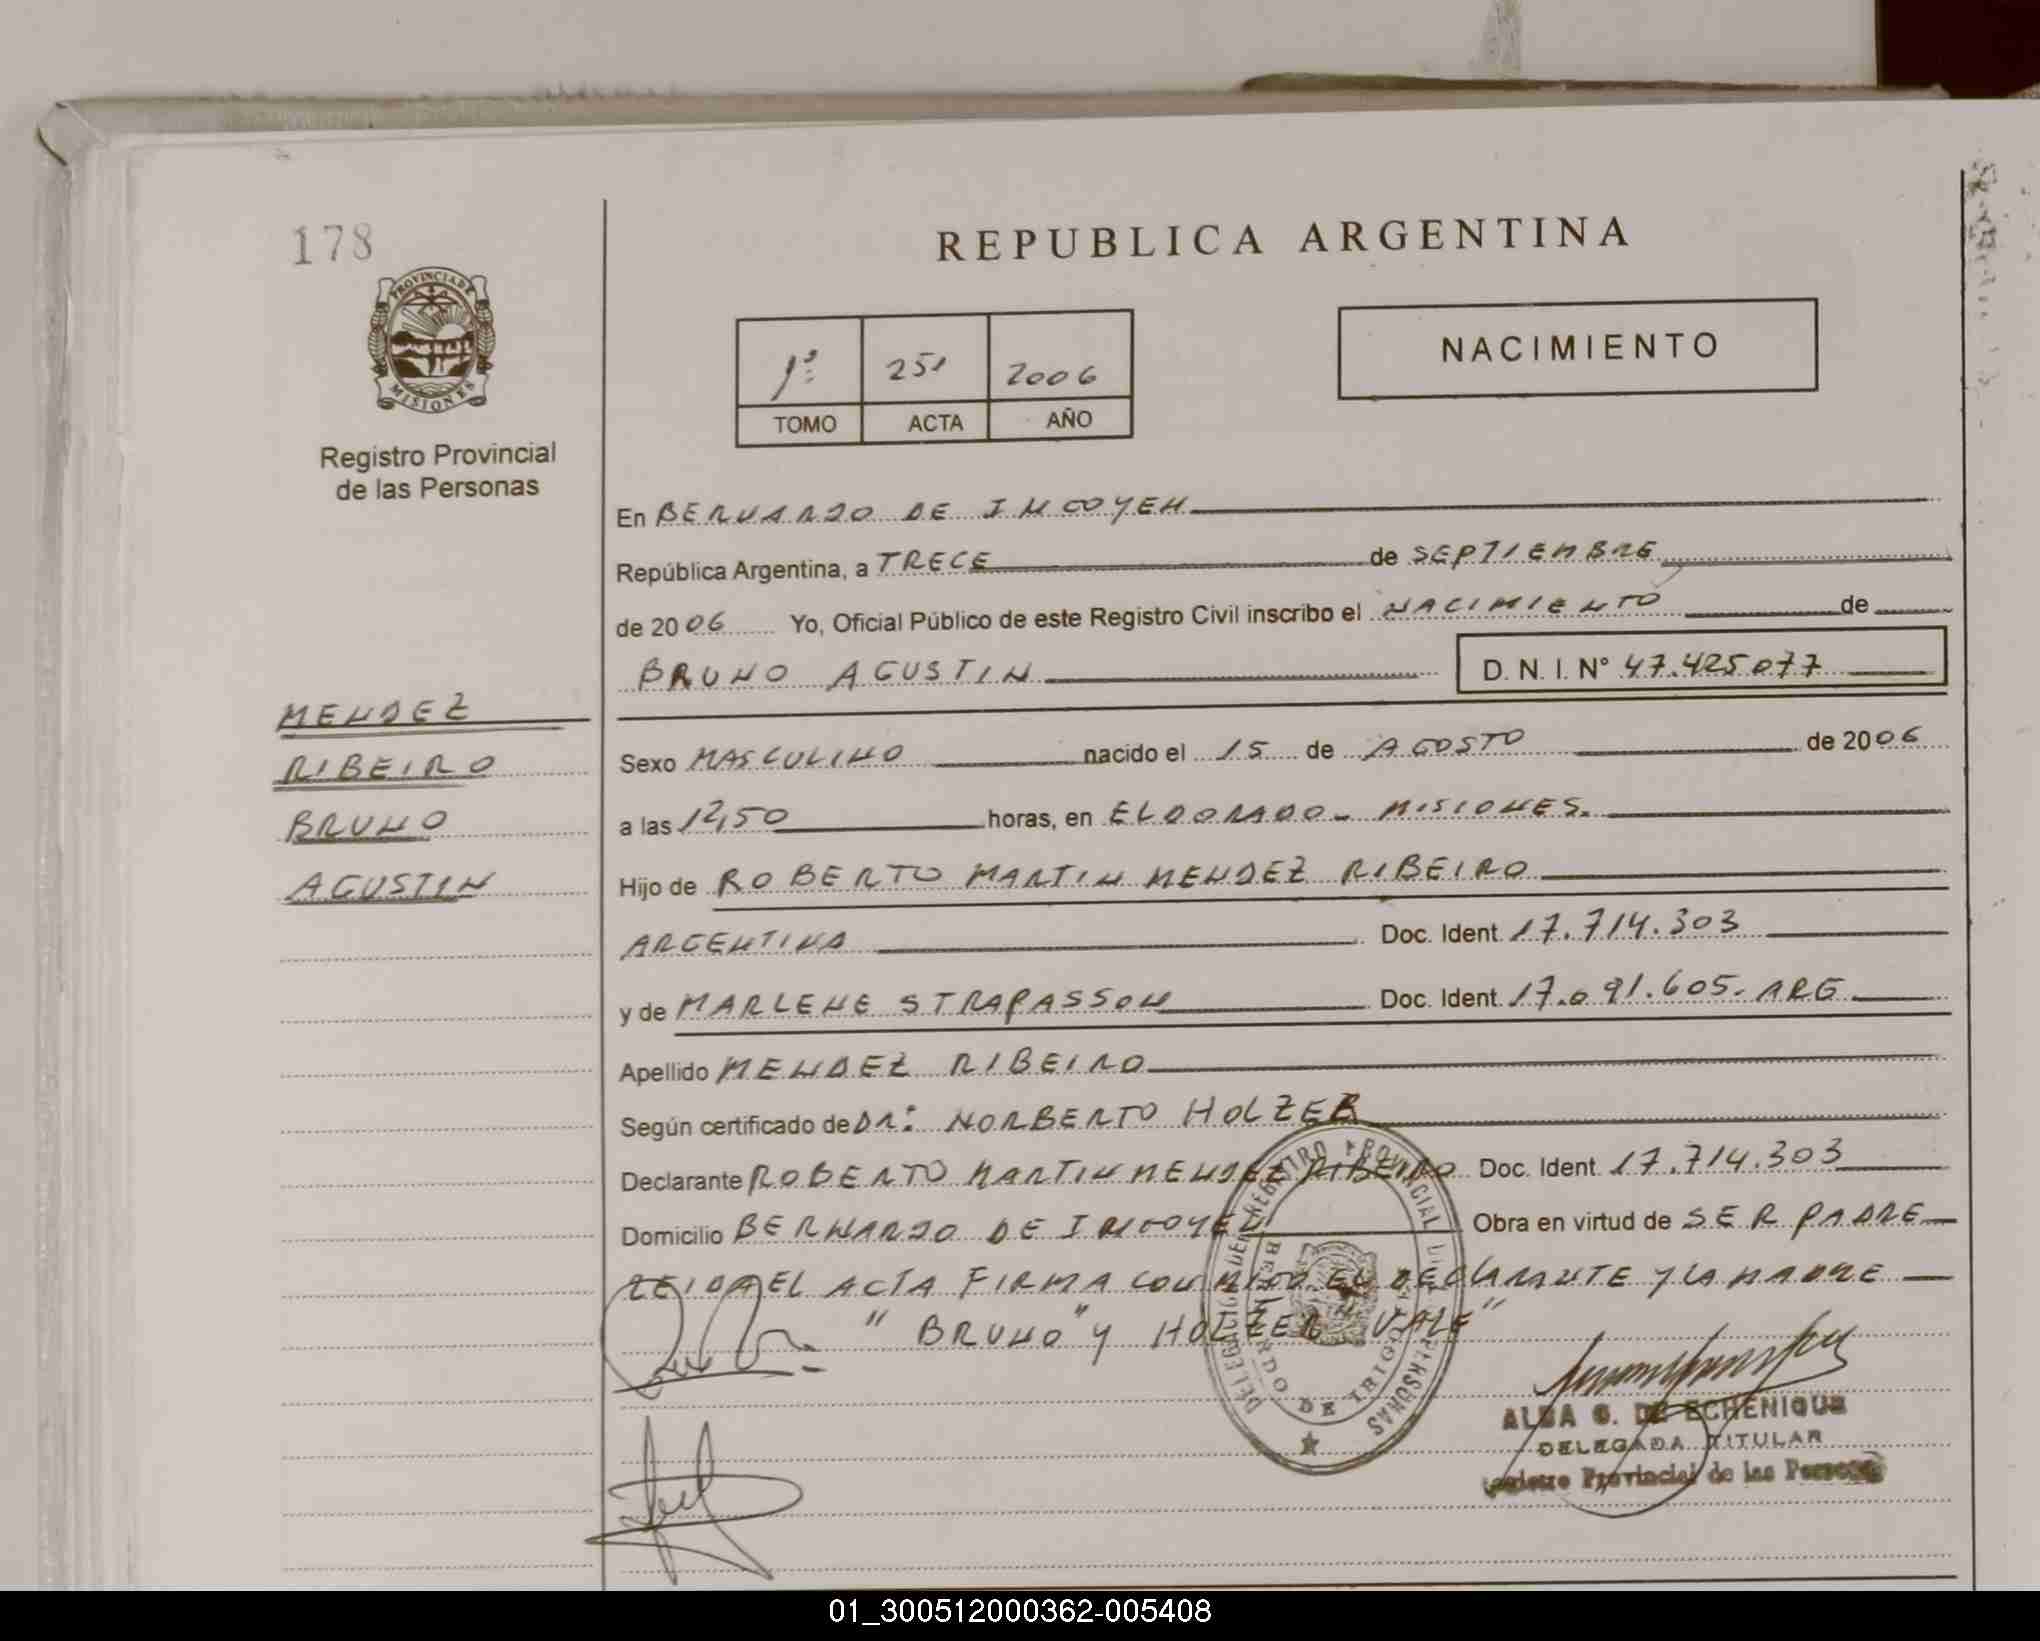 178
PROVINCIA DE
MISIONES
Registro Provincial
de las Personas
REPUBLICA ARGENTINA
1º 251 2006
TOMO ACTA AÑO
NACIMIENTO
En BERNARDO DE IRIGOYEN
República Argentina, a TRECE de SEPTIEMBRE
de 2006 Yo, Oficial Público de este Registro Civil inscribo el NACIMIENTO de
BRUNO AGUSTIN D. N. I. N° 47.425.077
MENDEZ
RIBEIRO
BRUNO
AGUSTIN
Sexo MASCULINO nacido el 15 de AGOSTO de 2006
a las 12,50 horas, en ELDORADO - MISIONES.
Hijo de ROBERTO MARTIN MENDEZ RIBEIRO
ARGENTINA Doc. Ident 17.714.303
y de MARLENE STRAPASSON Doc. Ident 17.691.605. ARG
Apellido MENDEZ RIBEIRO
Según certificado de DR: NORBERTO HOLZER
Declarante ROBERTO MARTIN MENDEZ RIBEIRO Doc. Ident 17.714.303
Domicilio BERNARDO DE IRIGOYEN Obra en virtud de SER PADRE
LEIDA EL ACTA FIRMA CONMIGO EL DECLARANTE Y LA MADRE
"BRUNO" y HOLZER "VALE"
DELEGACION DEL REGISTRO PROVINCIAL DE LAS PERSONAS
BERNARDO DE IRIGOYEN
ALBA G. DE ECHENIQUE
DELEGADA TITULAR
Registro Provincial de las Personas
01_300512000362-005408